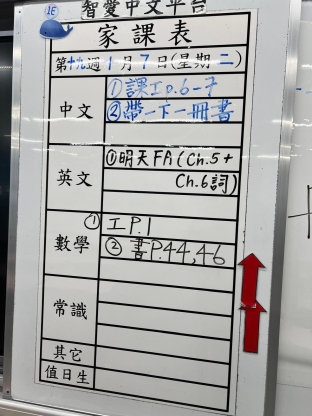 智愛中文平台
1E
家課表
第十九週 1月7日(星期二)
中文
①課工p.6-7
②帶一下一冊書
英文
①明天FA(Ch.5+
Ch.6詞)
數學
①工P.1
②書P.44,46
常識
其它
值日生